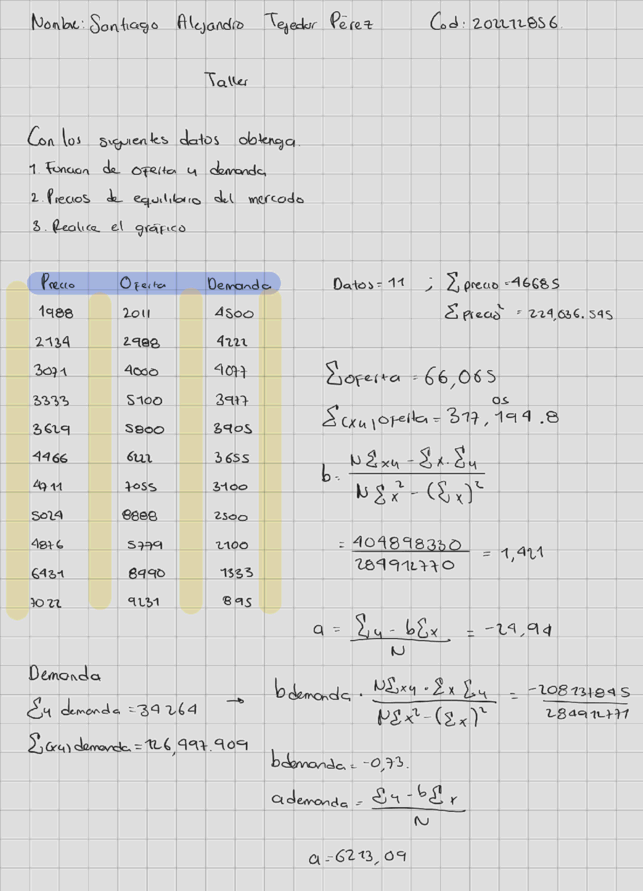 Nombre: Santiago Alejandro Tejedor Pérez Cod: 202212856.
Taller
Con los siguientes datos obtenga.
1. Funcion de oferta y demanda
2. Precios de equilibrio del mercado
3. Realice el gráfico
Precio Oferta Demanda
1988 2011 4500
2134 2988 4222
3071 4000 4077
3333 5100 3977
3629 5800 3905
4466 6222 3655
4711 7055 3100
5024 8888 2500
4876 5779 2100
6431 8990 1333
7022 9231 895
Datos = 11 ; Σ precio = 46685
Σ precio² = 224,036.545
Σ oferta = 66,065
Σ(xy) oferta = 317,194.8
05
b = NΣxy - Σx·Σy / NΣx² - (Σx)²
= 404898330 / 284912770 = 1,421
a = Σy - bΣx / N = -24,94
Demanda
Σy demanda = 34264
Σ(xy) demanda = 126,997.909
→ b demanda · NΣxy · Σx Σy / NΣx² - (Σx)² = -208131845 / 284912771
b demanda = -0,73.
a demanda = Σy - bΣx / N
a = 6213,09